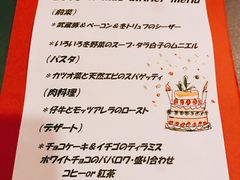 dinner menu
(前菜)
*武蔵豚&ベーコン&冬トリュフのシーザー
*いろいろ冬野菜のスープ・タラ白子のムニエル
(パスタ)
*カツオ菜と天然エビのスパゲッティ
(肉料理)
*仔牛とモッツアレラのロースト
(デザート)
*チョコケーキ&イチゴのティラミス
ホワイトチョコのババロワ・盛り合わせ
コヒーor紅茶